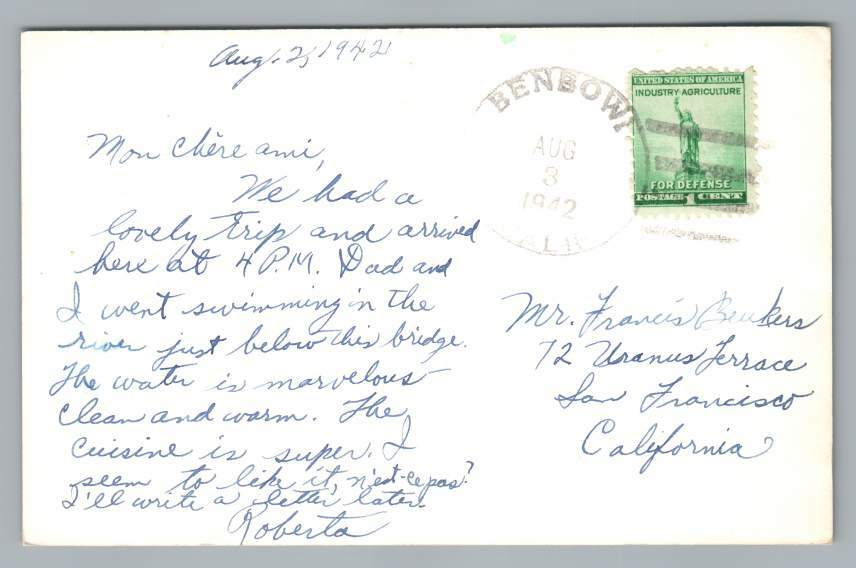 Aug. 2, 1942
Mon Chère ami,
We had a
lovely trip and arrived
here at 4 P.M. Dad and
I went swimming in the
river just below this bridge.
The water is marvelous -
clean and warm. The
cuisine is super. I
seem to like it, n'est-ce pas?
I'll write a letter later.
Roberta
BENBOW
AUG
3
1942
CALIF
UNITED STATES OF AMERICA
INDUSTRY AGRICULTURE
FOR DEFENSE
POSTAGE 1 CENT
Mr. Francis Beukers
72 Uranus Terrace
San Francisco
California